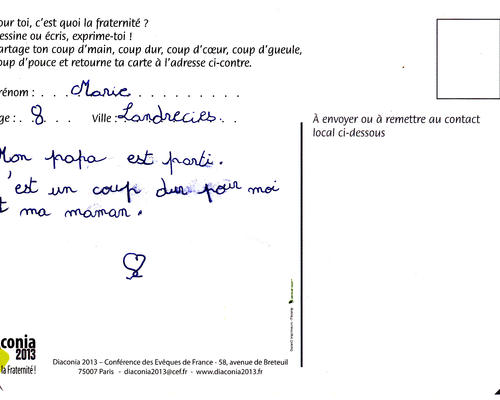 our toi, c'est quoi la fraternité ?
essine ou écris, exprime-toi !
artage ton coup d'main, coup dur, coup d'cœur, coup d'gueule,
oup d'pouce et retourne ta carte à l'adresse ci-contre.
rénom : . . . Marie . . . . . . . . .
ge : . 8 . . . Ville : Landrecies . .
Mon papa est parti.
'est un coup dur pour moi
t ma maman.
À envoyer ou à remettre au contact
local ci-dessous
conia
2013
la Fraternité !
Diaconia 2013 – Conférence des Evêques de France - 58, avenue de Breteuil
75007 Paris - diaconia2013@cef.fr - www.diaconia2013.fr